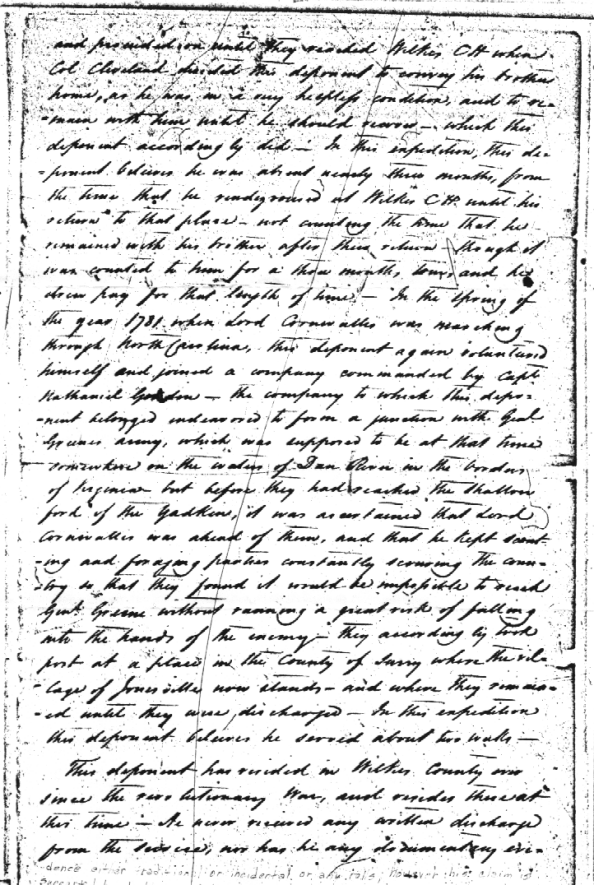 and proceeded on until they reached Wilkes C.H. when
Col Cleveland directed this deponent to convey his brother
home, as he was in a very helpless condition, and to re-
-main with him until he should recover — which this
deponent accordingly did — In this expedition, this de-
-ponent believes he was absent nearly three months, from
the time that he rendezvoused at Wilkes C.H. until his
return to that place — not counting the time that he
remained with his brother after their return, though it
was counted to him for a three months tour, and he
drew pay for that length of time — In the Spring of
the year 1781 when Lord Cornwallis was marching
through North Carolina, this deponent again volunteered
himself and joined a company commanded by Capt
Nathaniel Gordon — the company to which this depo-
-nent belonged endeavored to form a junction with Genl
Greenes army, which was supposed to be at that time
somewhere on the waters of Dan River in the borders
of Virginia but before they had reached the Shallow
ford of the Yadkin, it was ascertained that Lord
Cornwallis was ahead of them, and that he kept scout-
-ing and foraging parties constantly scouring the coun-
-try so that they found it would be impossible to reach
Genl. Greene without running a great risk of falling
into the hands of the enemy — they accordingly took
post at a place in the County of Surry where the vil-
-lage of Jonesville now stands — and where they remain-
-ed until they were discharged — In this expedition
this deponent believes he served about two weeks —
This deponent has resided in Wilkes County ever
since the revolutionary War, and resides there at
this time — He never received any written discharge
from the service, nor has he any documentary evi-
dence either traditional or incidental or any